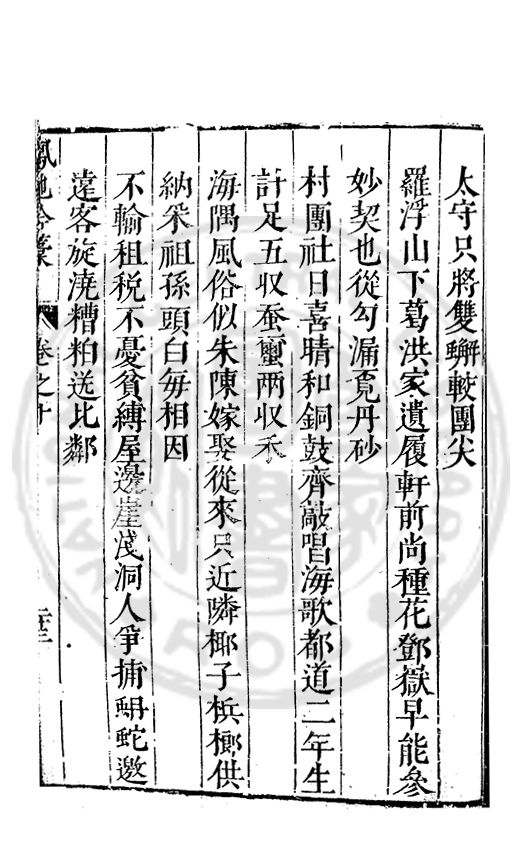 太守只將雙鼊較團尖
羅浮山下葛洪家遺履軒前尚種花鄧嶽早能參
妙契也從勾漏覓丹砂
村團社日喜晴和銅鼓齊敲唱海歌都道二年生
計足五收蚕𧖟兩收禾
海隅風俗似朱陳嫁娶從來只近隣椰子梹榔供
納采祖孫頭白每相因
不輸租稅不憂貧縛屋邊崖淺洞人爭捕蚺蛇邀
遠客旋澆糟粕送比鄰
卷之十